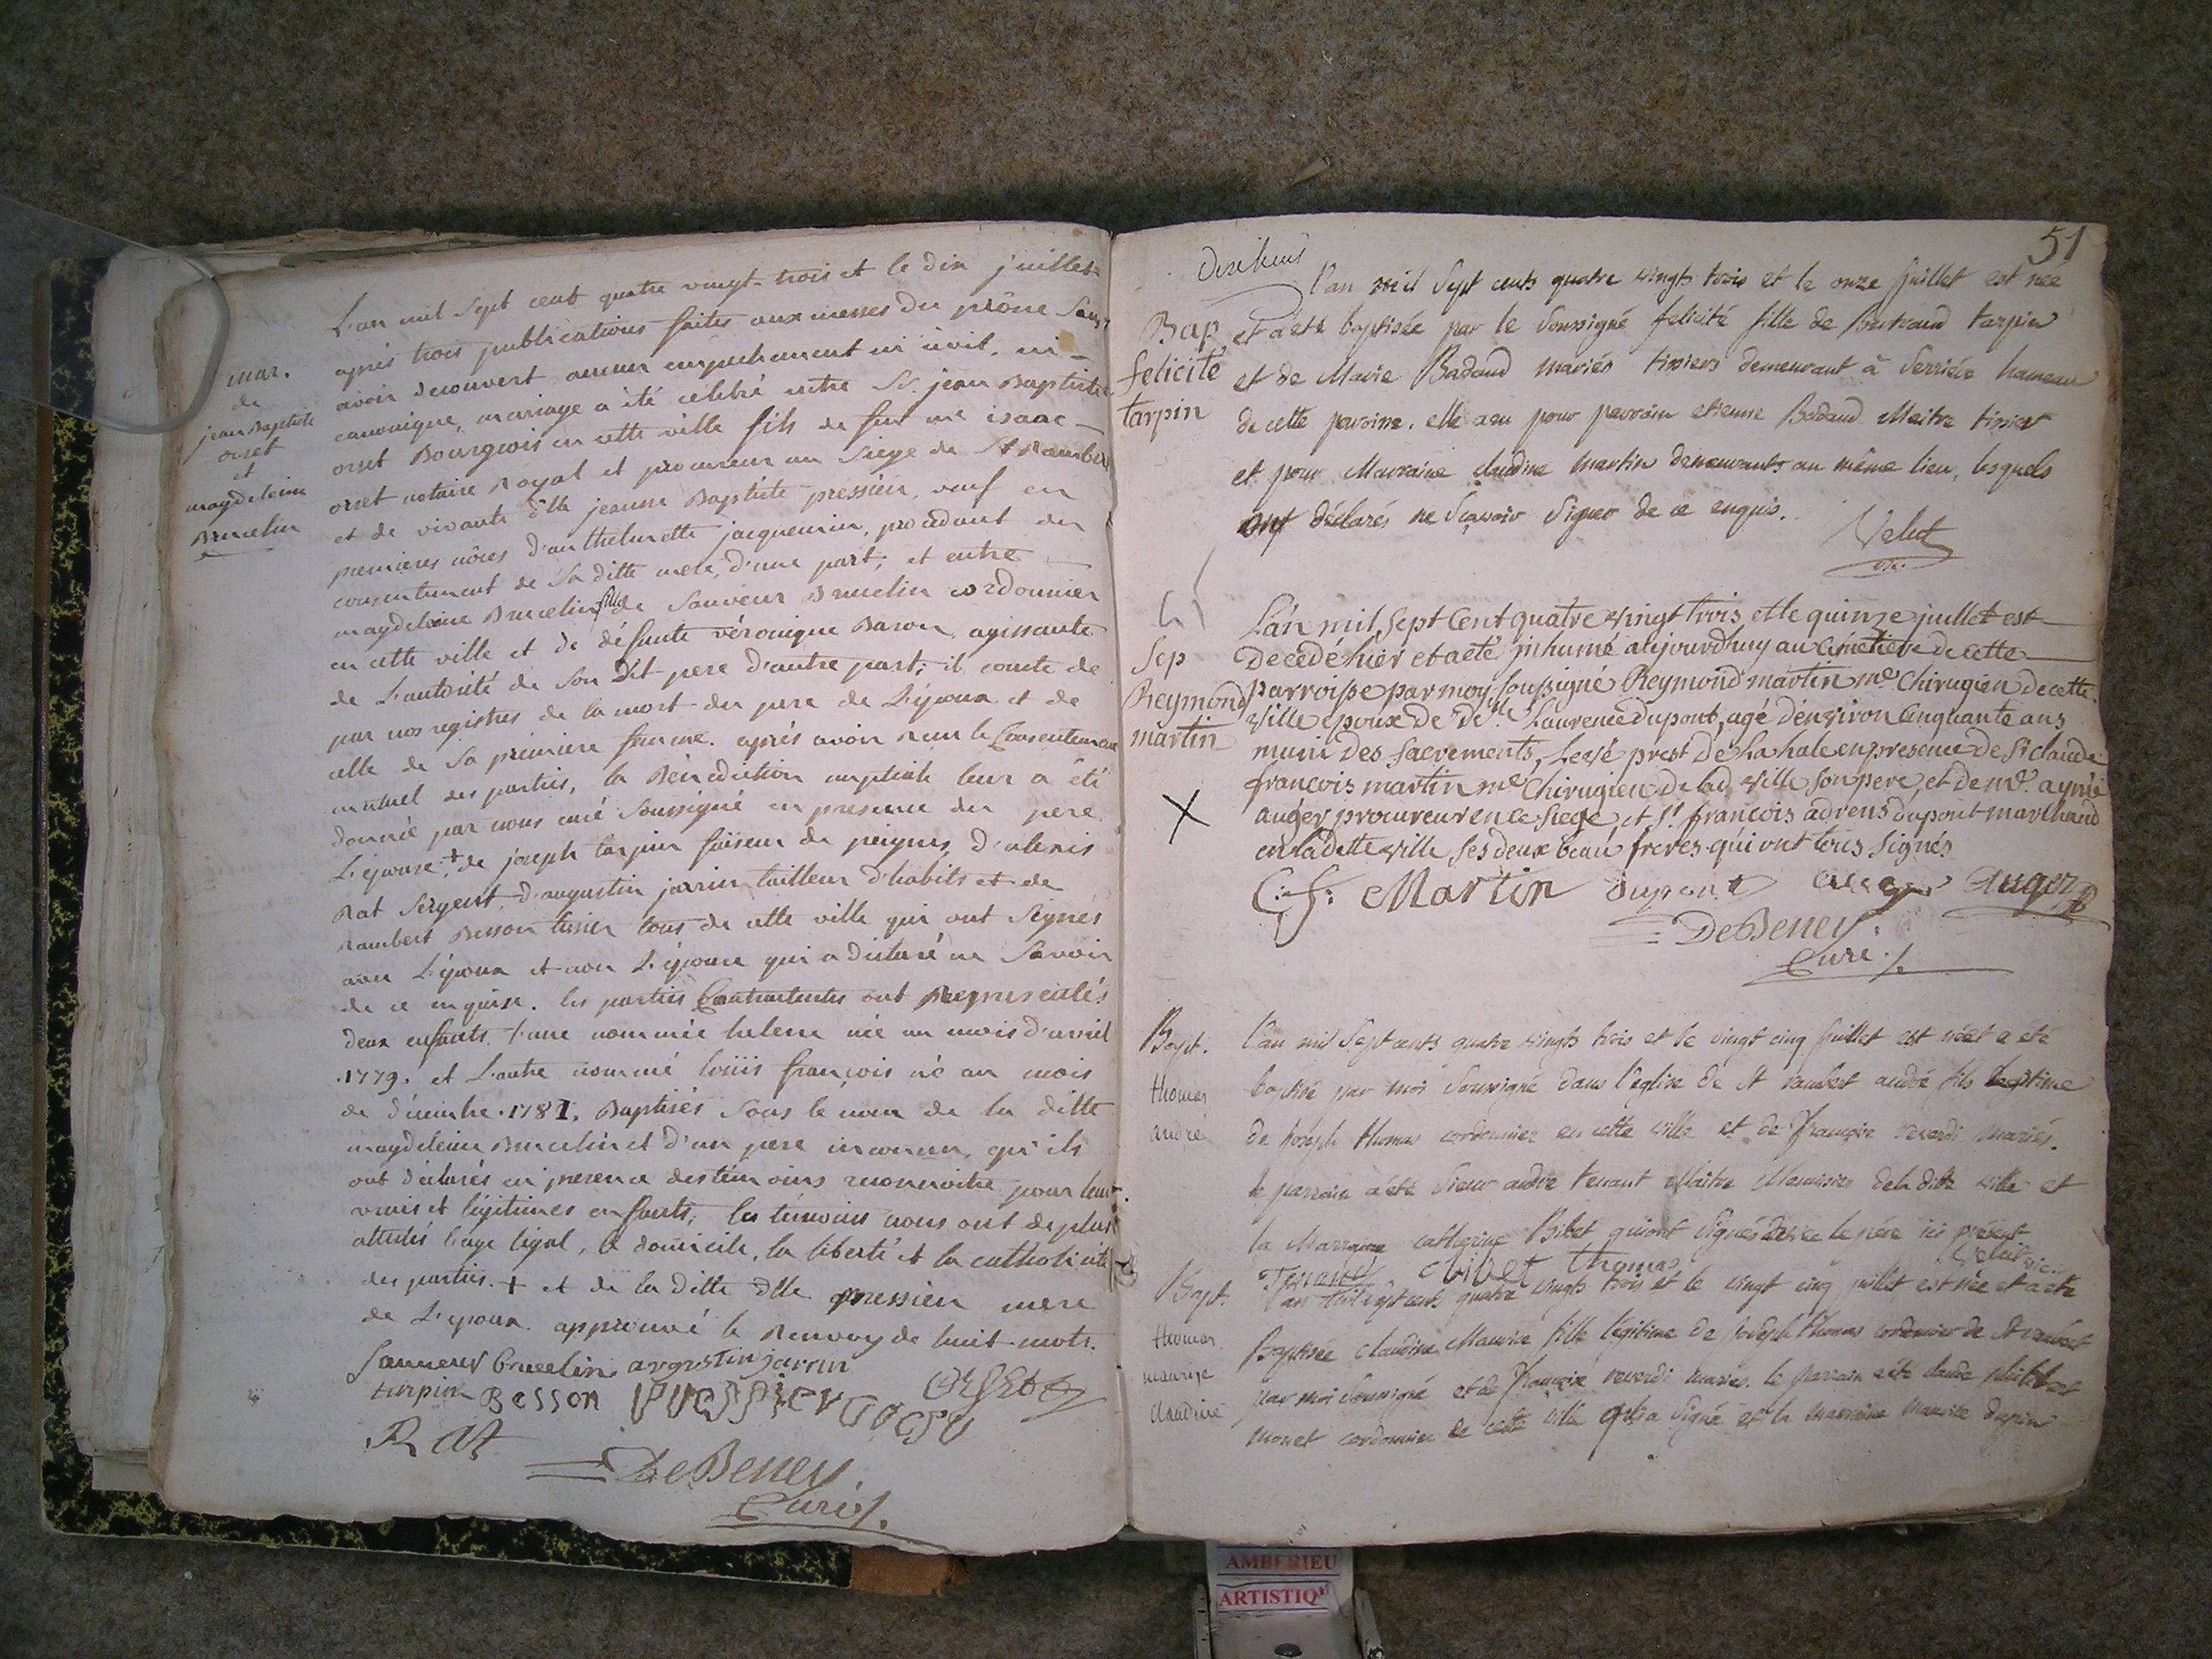 mar.
de
jean Baptiste
orset
et
magdeleine
Brucelin
L'an mil sept cent quatre vingt-trois et le dix juillet
après trois publications faites aux messes du prône sans
avoir decouvert aucun empechement ni civil, ni
canonique, mariage a été célébré entre Sr. jean Baptiste
orset Bourgeois en cette ville fils de feu me isaac
orset notaire Royal et procureur au siege de St Rambert
et de vivante dlle jeanne Baptiste pressieu, veuf en
premieres nôces d'anthelmette jacquemin, procedant du
consentement de sa ditte mere, d'une part; et entre
magdeleine Brucelin fille de Sauveur Brucelin cordonnier
en cette ville et de défunte véronique Baron agissante
de L'autorité de son dit pere d'autre part; il conste de
par nos registres de la mort du pere de L'époux et de
celle de sa premiere femme. après avoir reçu le Consentement
mutuel des parties, la Bénédiction nuptiale leur a été
donnée par nous curé soussigné en presence du pere
L'épouse, + de joseph tarpin faiseur de peignes, d'alexis
Rat Sergent, d'augustin jarrin tailleur d'habits et de
Rambert Besson tissier tous de cette ville qui ont signés
avec L'époux et non L'épouse qui a déclaré ne savoir
de ce enquise. les parties Contractantes ont Representés
deux enfants, l'une nommée helene née au mois d'avril
.1779. et L'autre nommé loüis françois né au mois
de décembre .1781. Baptisés sous le nom de la ditte
magdeleine Brucelin et d'un pere inconnu, qu'ils
ont déclarés en presence des témoins reconnoitre pour leurs
vrais et légitimes enfants; les témoins nous ont de plus
attestés l'age légal, le domicile, la liberté et la catholicité
des parties. + et de la ditte dlle pressieu mere
de L'epoux. approuvé le Renvoy de huit mots.
Sauveur Brucelin augustin jarrin
tarpin Besson ORSET
Rat
DeBeney
Curé
51
Bap
felicité
tarpin
l'an mil sept cents quatre vingts trois et le onze juillet est née
et a été baptisée par le soussigné felicité fille de Bertrand tarpin
et de Marie Badaud mariés tissiers demeurant à Serriére hameau
de cette paroisse. elle a eu pour parrain etienne Badaud Maitre tissier
et pour Marraine claudine martin demeurants au même lieu, lesquels
ont déclarés ne sçavoir signer de ce enquis.
Velut
vic.
Sep
Reymond
martin
L'an mil sept Cent quatre vingt trois et le quinze juillet est
decedé hier et a eté inhumé aujourd'huy au Cimetiere de cette
parroisse par moy soussigné Reymond martin me Chirugien de cette
Ville epoux de dlle Laurence dupont, agé d'environ Cinquante ans
muni des sacrements, Levé prest de la hale en presence de Sr claude
françois martin me Chirugien de lad. Ville son pere, et de me aymé
auger procureur en ce siege, et Sr françois adrens dupont marchand
en la dette ville ses deux beau freres qui ont tous signés
C: f: Martin dupont auger
DeBeney
Curé
X
Bapt.
thomas
andré
l'an mil sept cents quatre vingts trois et le vingt cinq juillet est né et a été
baptisé par moi soussigné dans l'eglise de St rambert andré fils legitime
de joseph thomas cordonnier en cette ville et de françoise reverdi mariés.
le parrain a été sieur andré tenant Maitre Menuisier de la ditte ville et
la Marraine catherine Bibet qui ont signés avec le père ici présent
Tenand Bibet thomas Velut vic.
Bapt.
thomas
maurise
claudine
l'an mil sept cents quatre vingts trois et le vingt cinq juillet est née et a été
Baptisée claudine Maurise fille légitime de joseph thomas cordonnier de St rambert
par moi soussigné et de françoise reverdi mariés. le parrain a été claude philibert
monet cordonnier de cette ville qui a signé et la marraine maurise dupin
AMBERIEU
ARTISTIQ